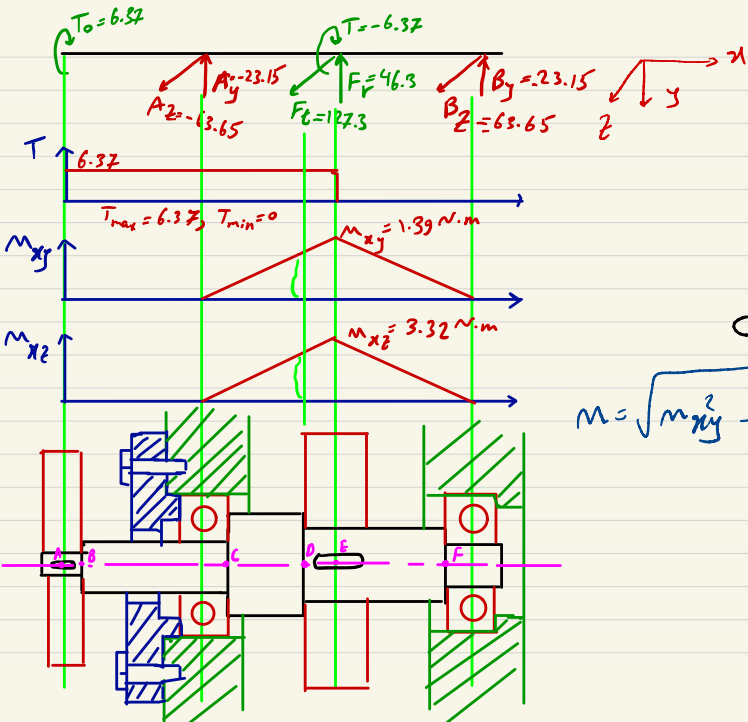 T₀ = 6.37
T = -6.37
A_y = -23.15
A_z = -63.65
F_r = 46.3
F_t = 127.3
B_y = -23.15
B_z = -63.65
x
y
z
T
6.37
T_max = 6.37, T_min = 0
M_xy
M_xy = 1.39 N.m
M_xz
M_xz = 3.32 N.m
M = √m²_xy -
A B C D E F